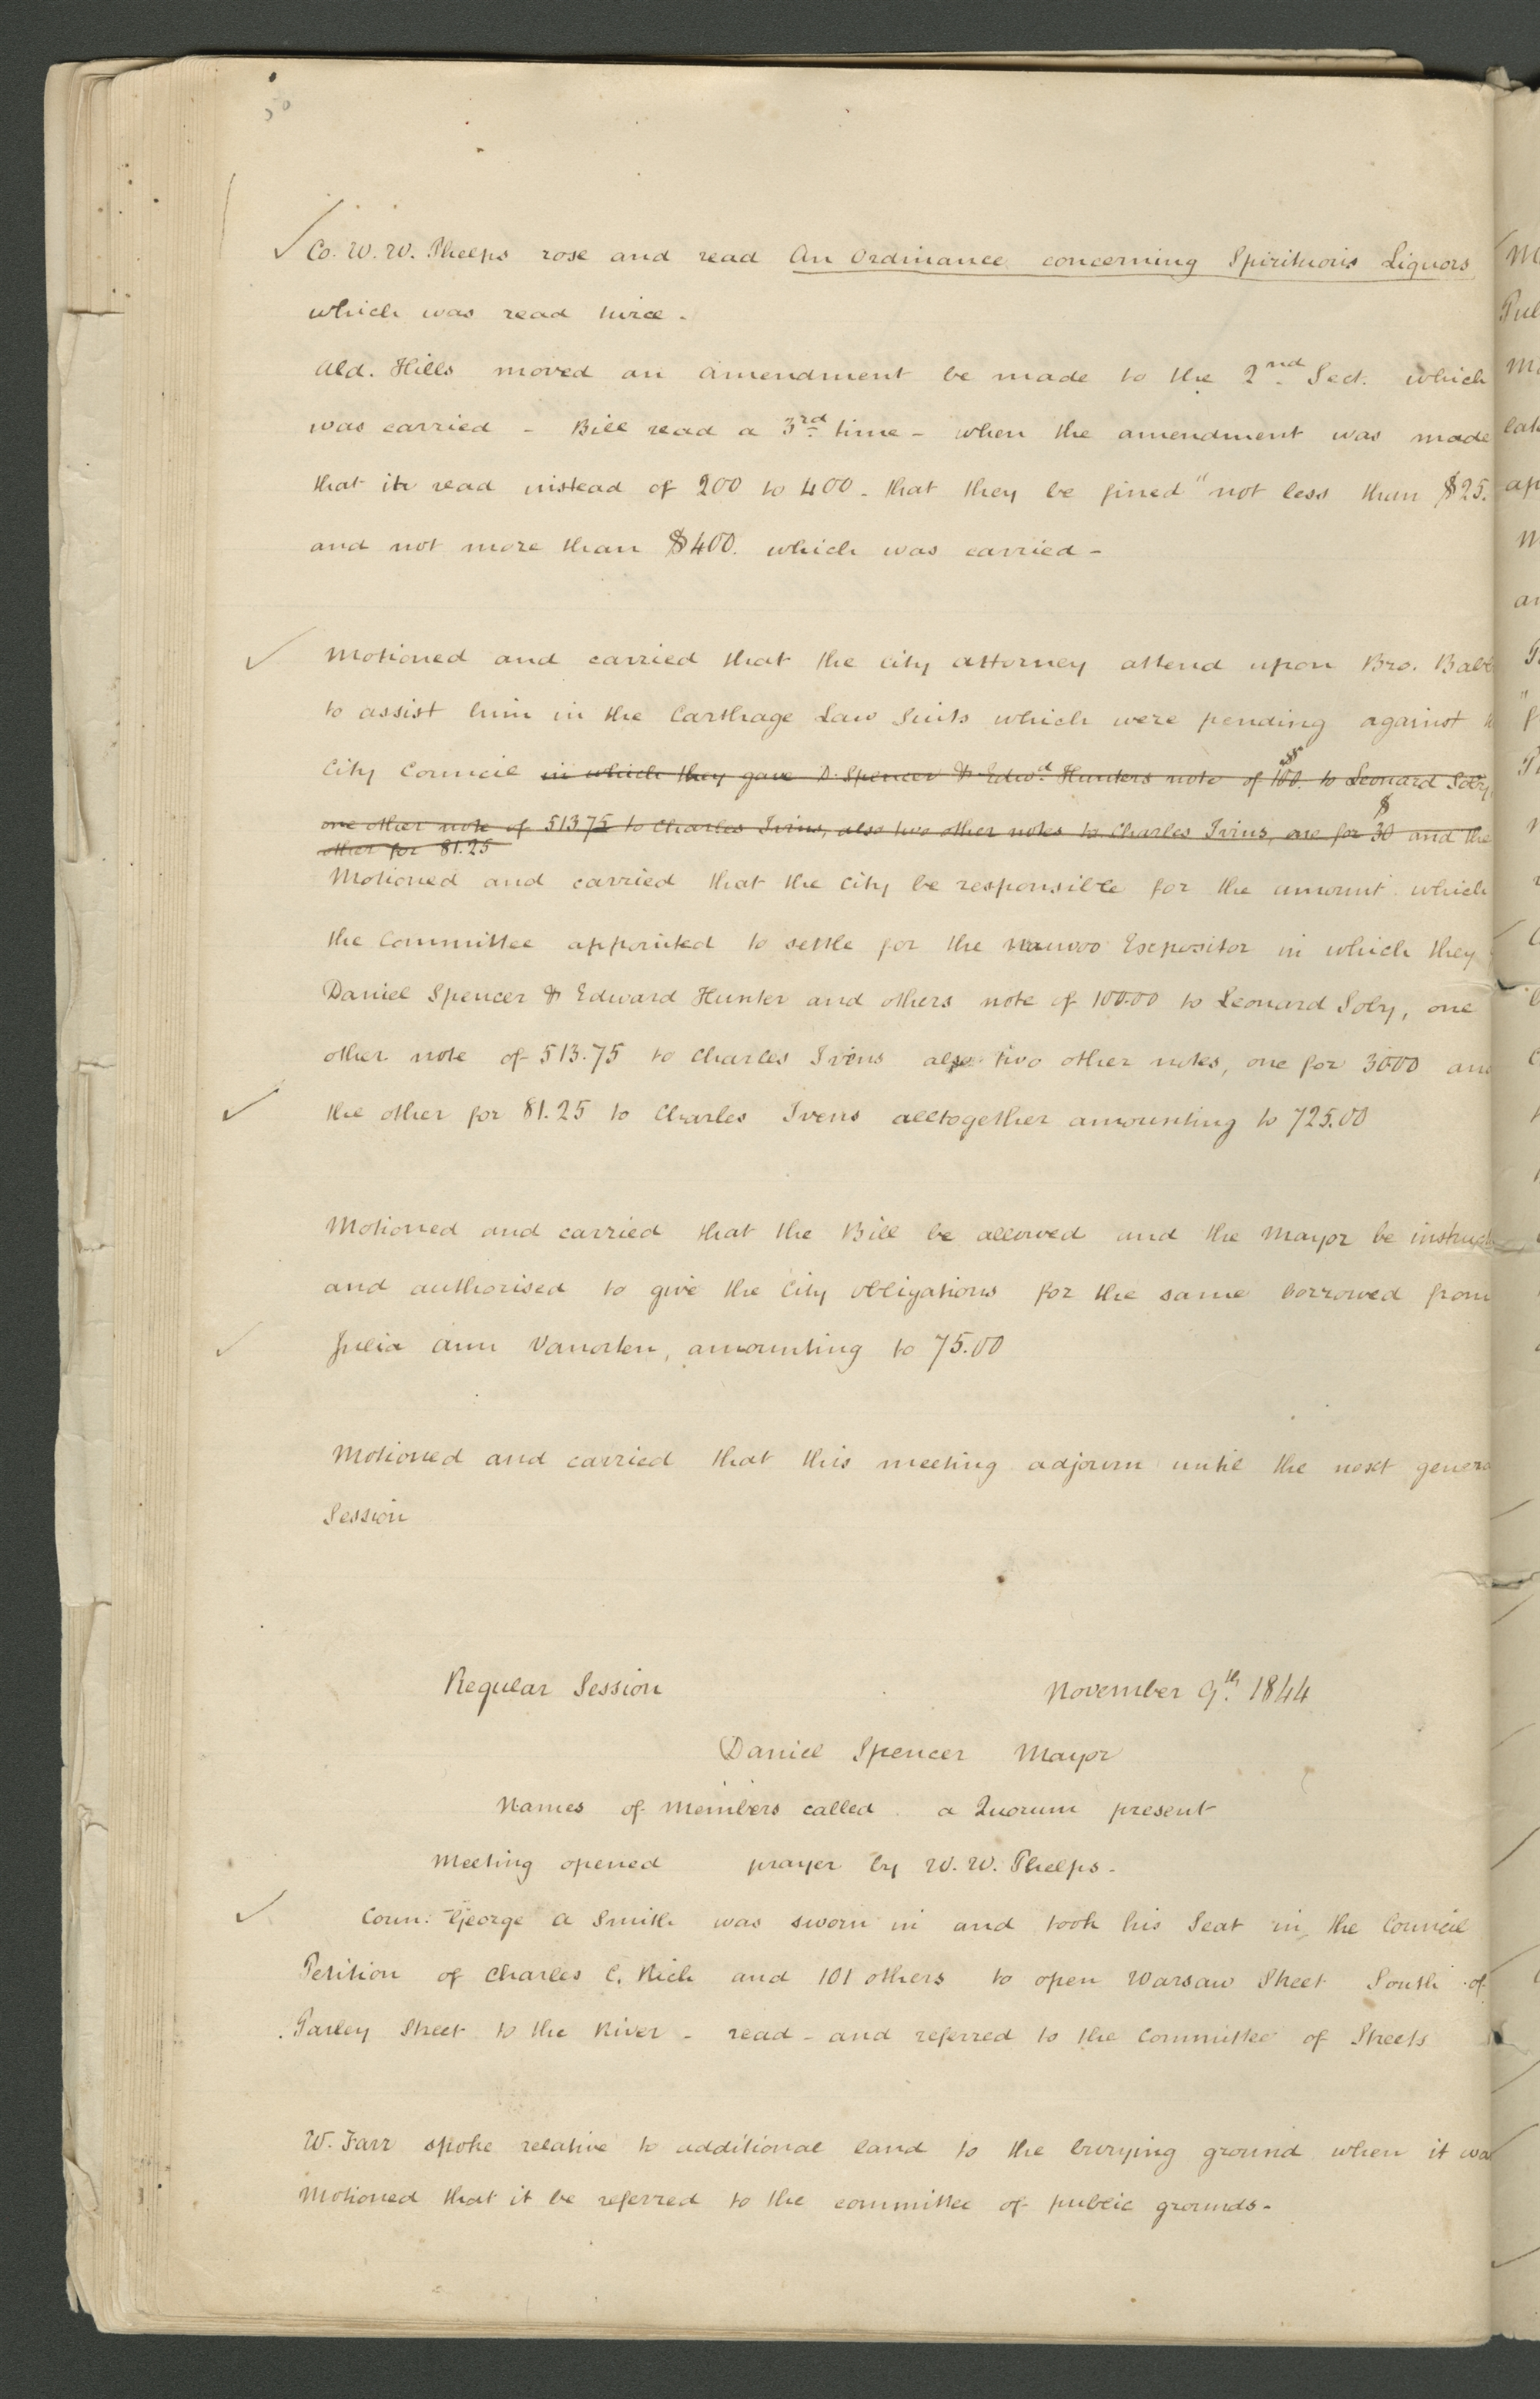 Co. W. W. Phelps rose and read An Ordinance concerning Spirituous Liquors
which was read twice -
Ald. Hills moved an amendment be made to the 2nd Sect. which
was carried - Bill read a 3rd time - when the amendment was made
that it read instead of 200 to 400 - that they be fined "not less than $25.
and not more than $400. which was carried -
Motioned and carried that the City Attorney attend upon Bro. Babb
to assist him in the Carthage Law Suits which were pending against
City Council in which they gave D. Spencer & Edwd Hunters note of 100. to Leonard Soby,
one other note of 513 75 to Charles Ivins, also two other notes to Charles Ivins, one for $30 and the
other for 81.25
Motioned and carried that the City be responsible for the amount which
the Committee appointed to settle for the Nauvoo Expositor in which they
Daniel Spencer & Edward Hunter and others note of 100.00 to Leonard Soby, one
other note of 513.75 to Charles Ivens also two other notes, one for 30.00 and
the other for 81.25 to Charles Ivens alltogether amounting to 725.00
Motioned and carried that the Bill be allowed and the Mayor be instruct
and authorised to give the City obligations for the same borrowed from
Julia Ann Vanorten, amounting to 75.00
Motioned and carried that this meeting adjourn until the next genera
Session
Regular Session November 9th. 1844
Daniel Spencer Mayor
Names of Members called a Quorum present
Meeting opened prayer by W. W. Phelps -
Coun: George A Smith was sworn in and took his Seat in the Council
Petition of Charles C. Rich and 101 others to open Warsaw Street South of
Parley Street to the River - read - and referred to the Committee of Streets
W. Farr spoke relative to additional land to the burying ground when it wa
Motioned that it be referred to the committee of public grounds -